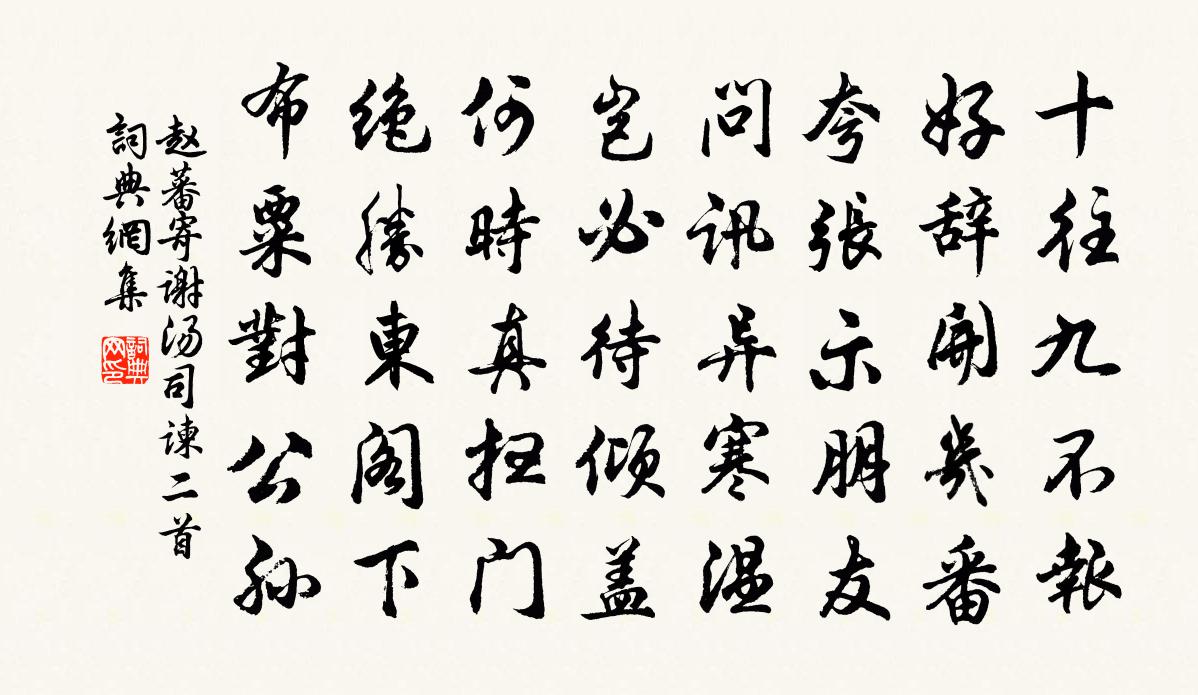 十往九不報
好辞開幾番
夸張示朋友
問訊异寒温
岂必待倾盖
何時真扫门
绝勝東阁下
布粟對公孙
赵蕃寄谢汤司谏二首
詞典網集
詞典网印